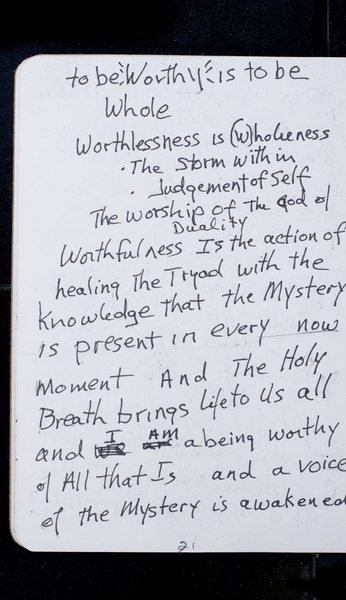 to be "Worthy" is to be
Whole
Worthlessness is (W)holieness
· The Storm within
· Judgement of Self
The worship of The God of
Duality
Worthfulness Is the action of
healing The Tryad with the
Knowledge that the Mystery
is present in every now
moment And The Holy
Breath brings life to us all
and I AM a being worthy
of All that Is and a voice
of the Mystery is awakened
21